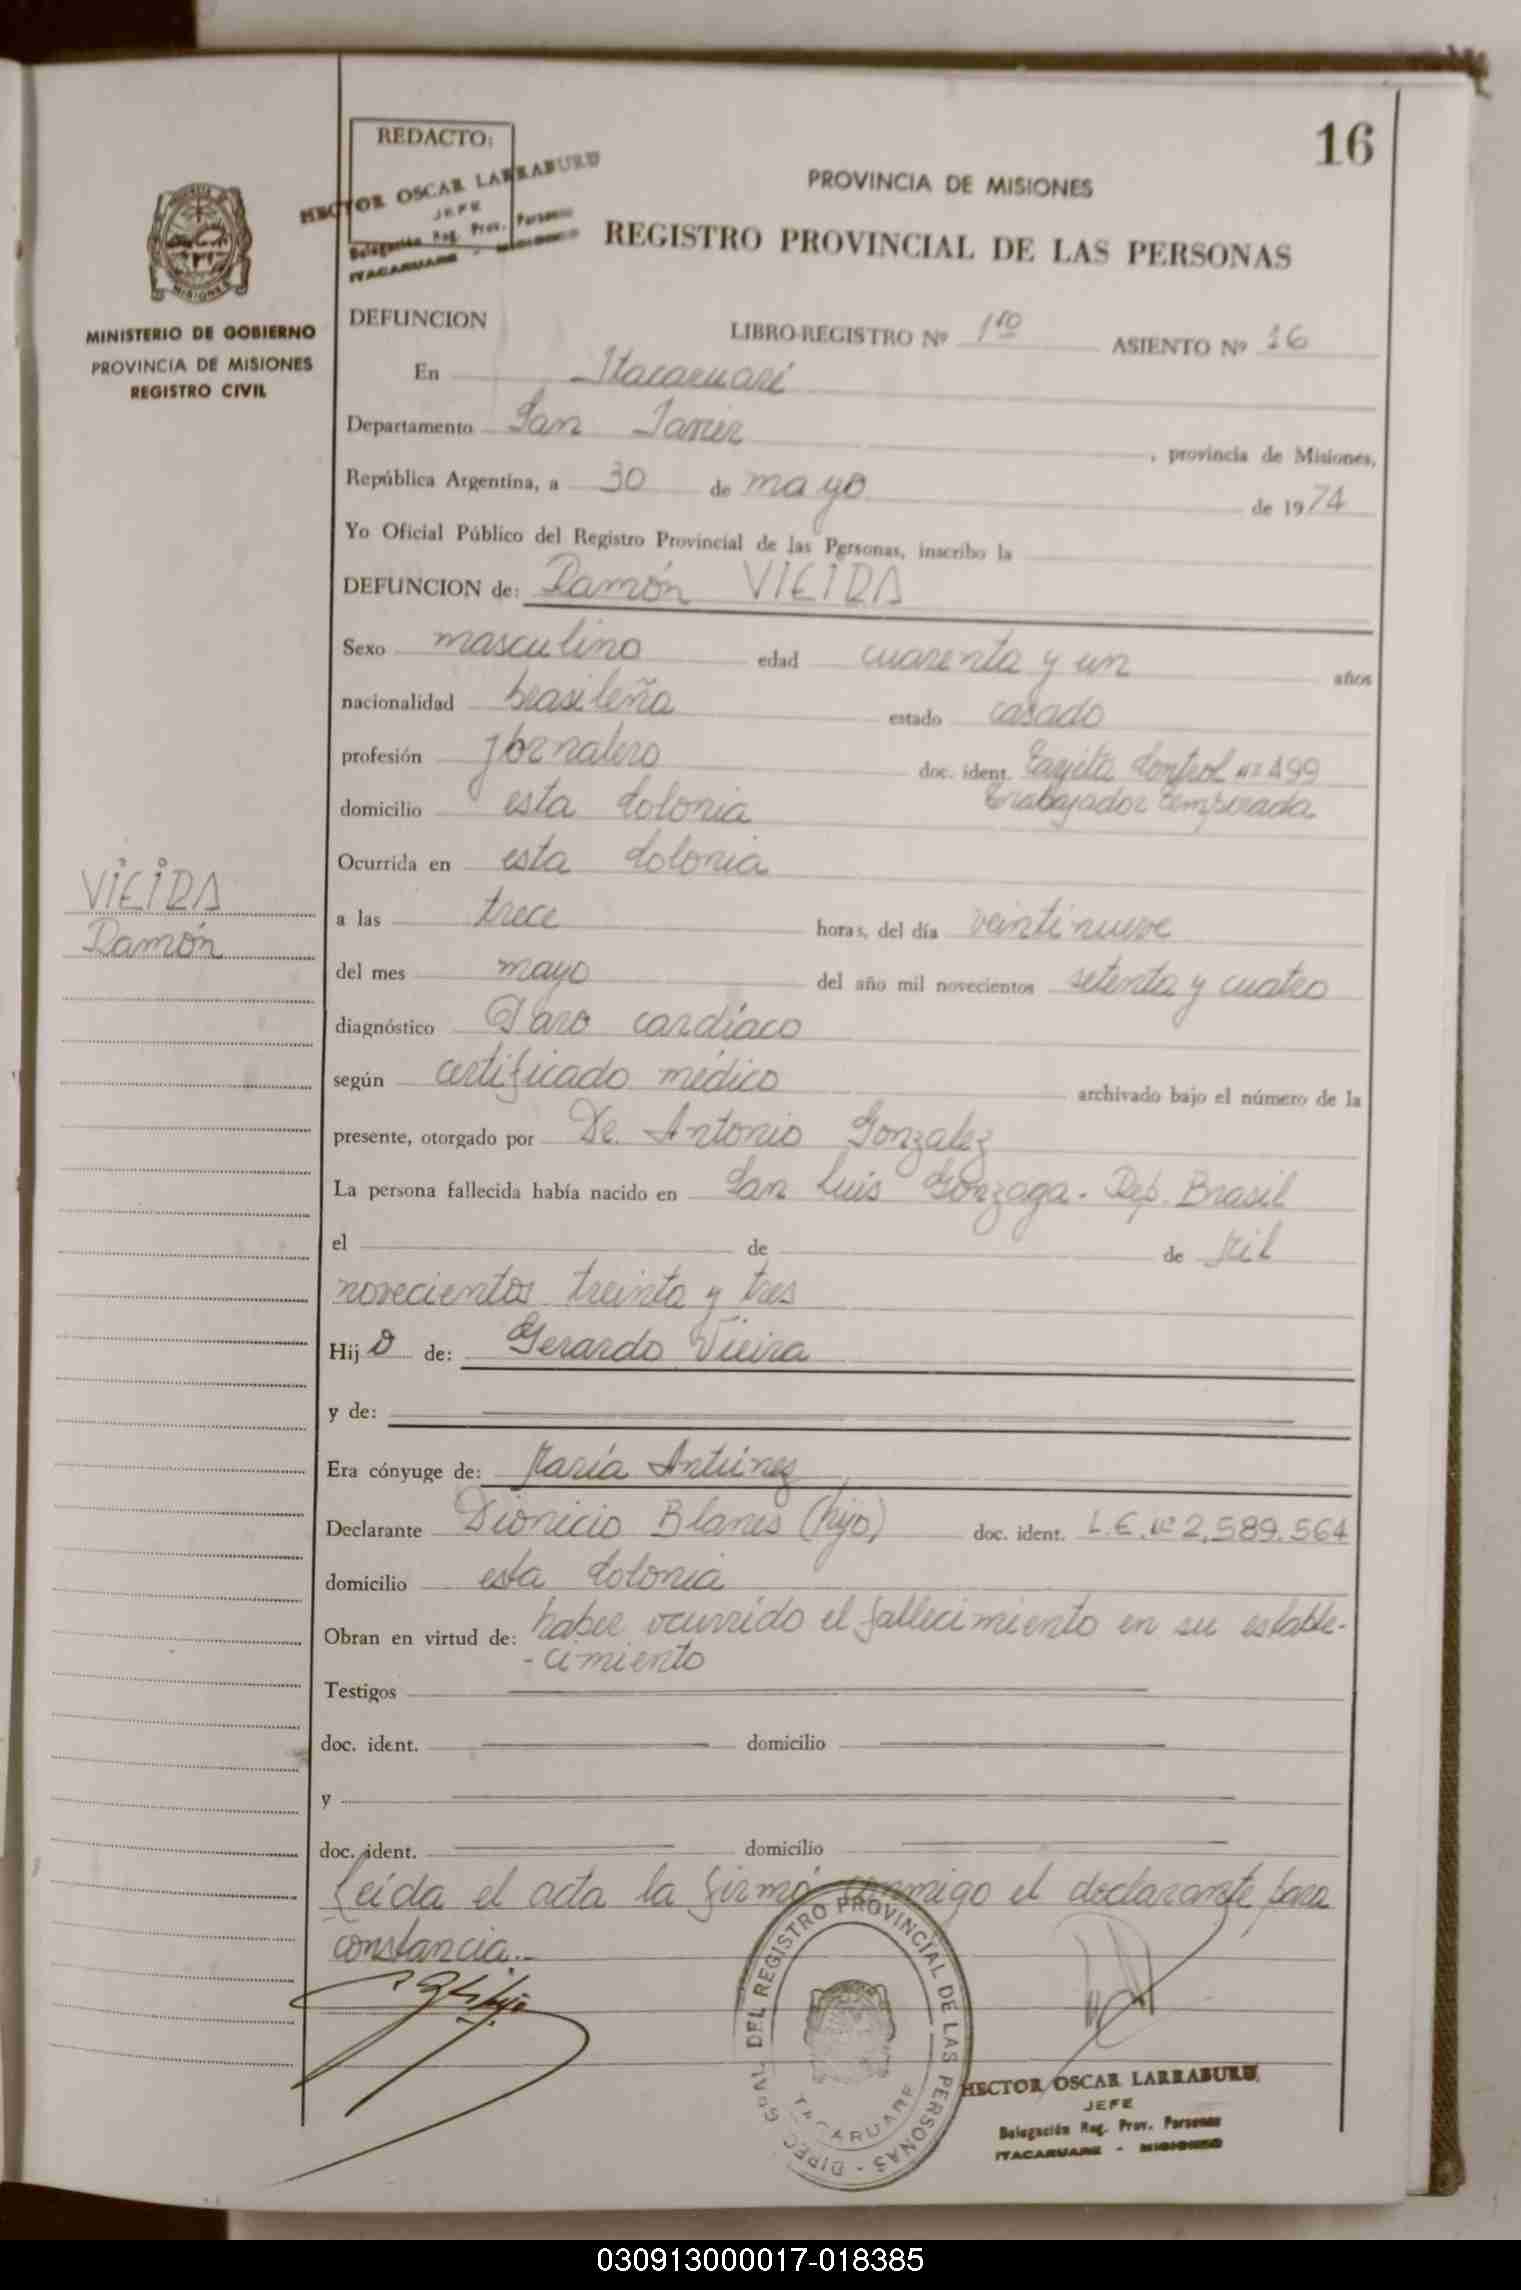 16
REDACTO:
HECTOR OSCAR LARRABURU
JEFE
Delegación Reg. Prov. Personas
ITACARUARE - MISIONES
PROVINCIA DE MISIONES
REGISTRO PROVINCIAL DE LAS PERSONAS
MINISTERIO DE GOBIERNO
PROVINCIA DE MISIONES
REGISTRO CIVIL
DEFUNCION LIBRO-REGISTRO Nº 1ro ASIENTO Nº 16
En Itacaruaré
Departamento San Javier , provincia de Misiones,
República Argentina, a 30 de mayo de 1974
Yo Oficial Público del Registro Provincial de las Personas, inscribo la
DEFUNCION de: Ramón VIEIRA
Sexo masculino edad cuarenta y un años
nacionalidad brasileña estado casado
profesión jornalero doc. ident. Tarjeta Control nº 499
trabajador temporada
domicilio esta Colonia
Ocurrida en esta Colonia
VIEIRA
Ramón
a las trece horas, del día veintinueve
del mes mayo del año mil novecientos setenta y cuatro
diagnóstico Paro cardíaco
según certificado médico archivado bajo el número de la
presente, otorgado por Dr. Antonio Gonzalez
La persona fallecida había nacido en San Luis Gonzaga - Rep. Brasil
el de de Mil
novecientos treinta y tres
Hijo de: Gerardo Vieira
y de:
Era cónyuge de: María Antúnez
Declarante Dionicio Blanes (hijo) doc. ident. L.E. Nº 2.589.564
domicilio esta Colonia
Obran en virtud de: haber ocurrido el fallecimiento en su estable-
-cimiento
Testigos
doc. ident. domicilio
y
doc. ident. domicilio
Leída el acta la firmó conmigo el declarante para
constancia.-
DIREC. GRAL. DEL REGISTRO PROVINCIAL DE LAS PERSONAS -
ITACARUARE
HECTOR OSCAR LARRABURU
JEFE
Delegación Reg. Prov. Personas
ITACARUARE - MISIONES
030913000017-018385